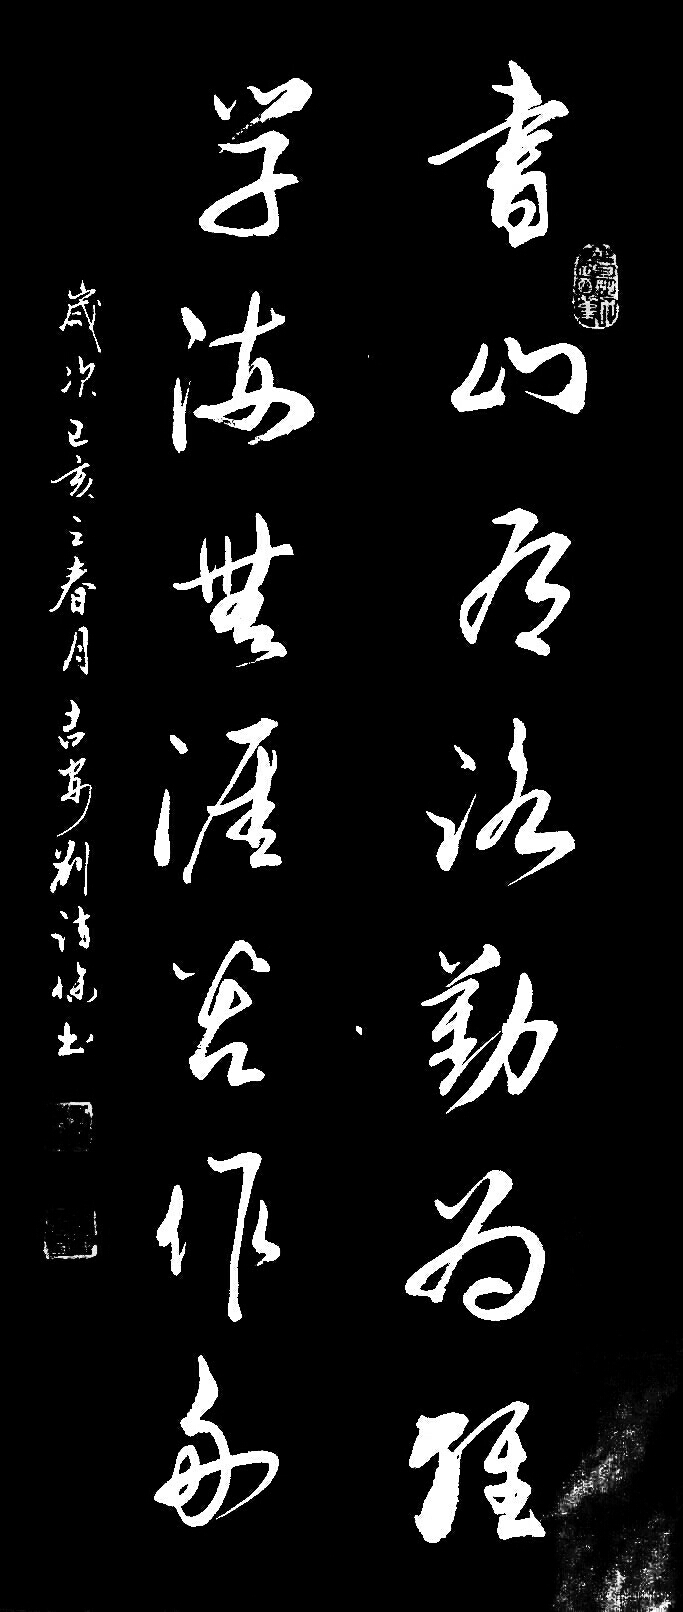 書山有路勤為徑
學海無涯苦作舟
歲次己亥之春月吉安劉詩憶書